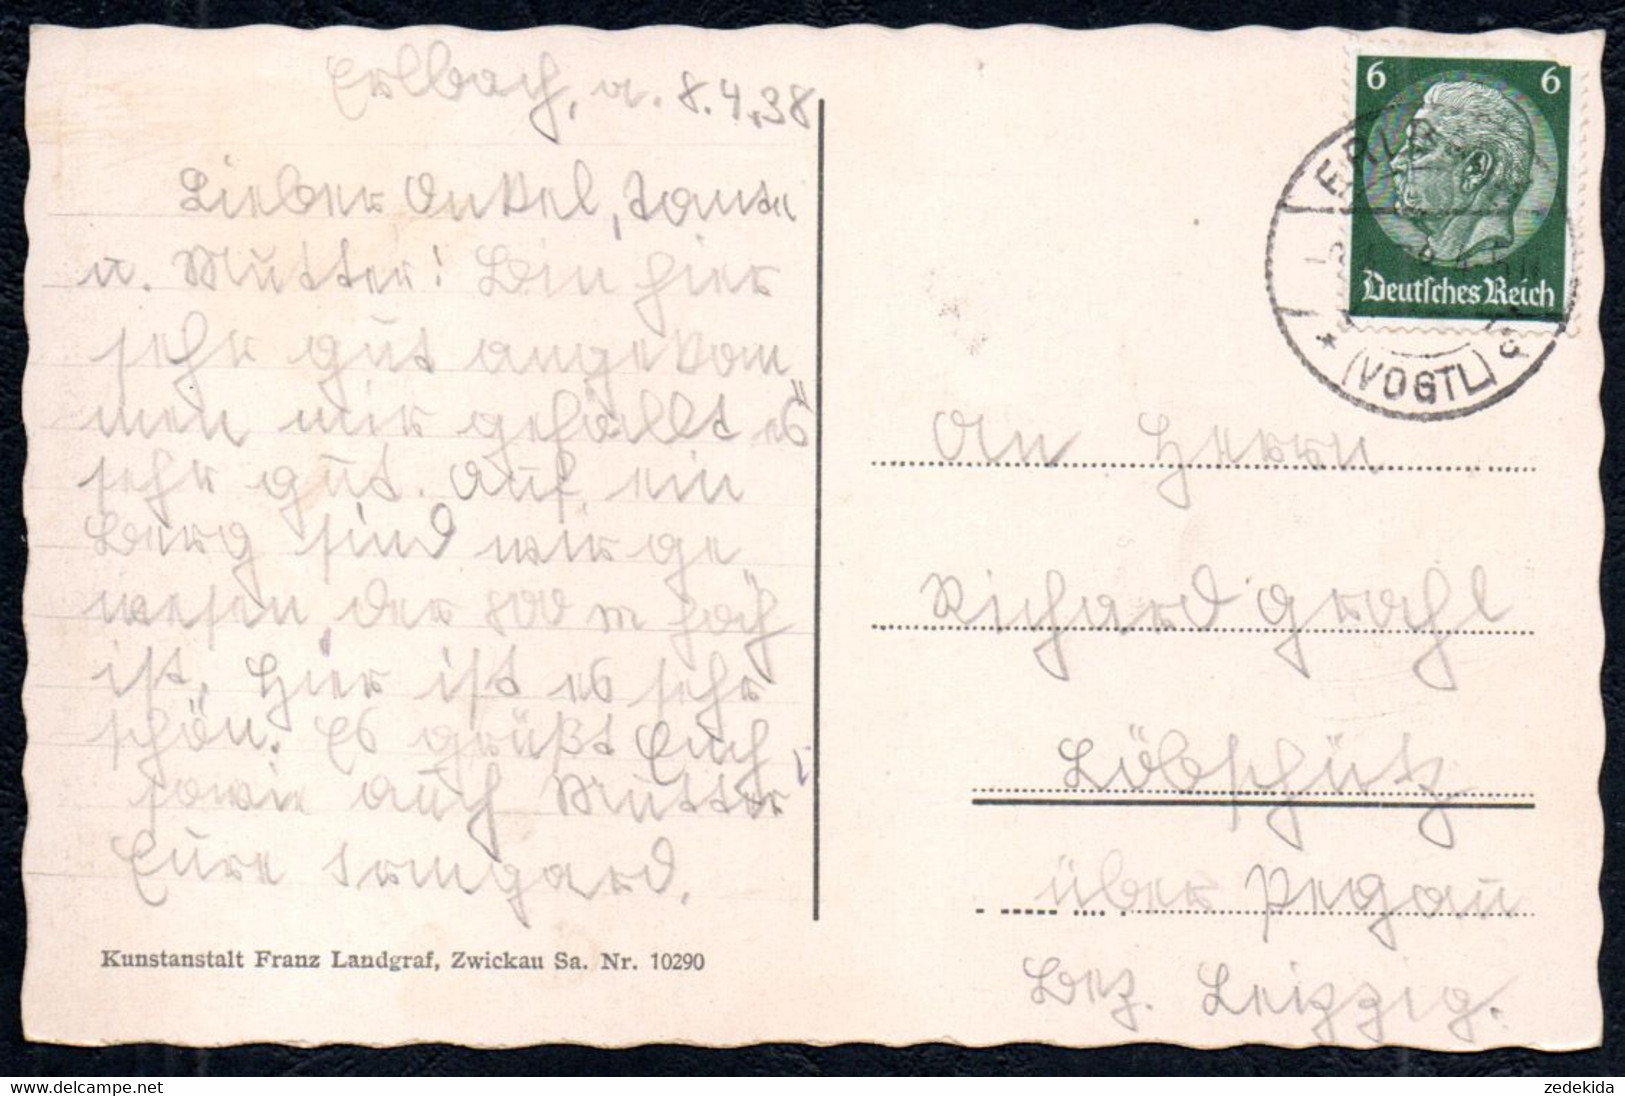 Erlbach, a. 8.4.38
Lieber Onkel, Tante
u. Mutter! Bin hier
sehr gut angekom
men mir gefällt es
sehr gut. Auf ein
Berg sind wir ge
wesen der 800 m hoch
ist. Hier ist es sehr
schön. Es grüßt Euch
sowie auch Mutter
Eure Irmgard.
Kunstanstalt Franz Landgraf, Zwickau Sa. Nr. 10290
6 6
Deutsches Reich
(VOGTL)
An Herrn
Richard Grahl
Löbschütz
über Pegau
Bez. Leipzig.
zedekida
www.delcampe.net